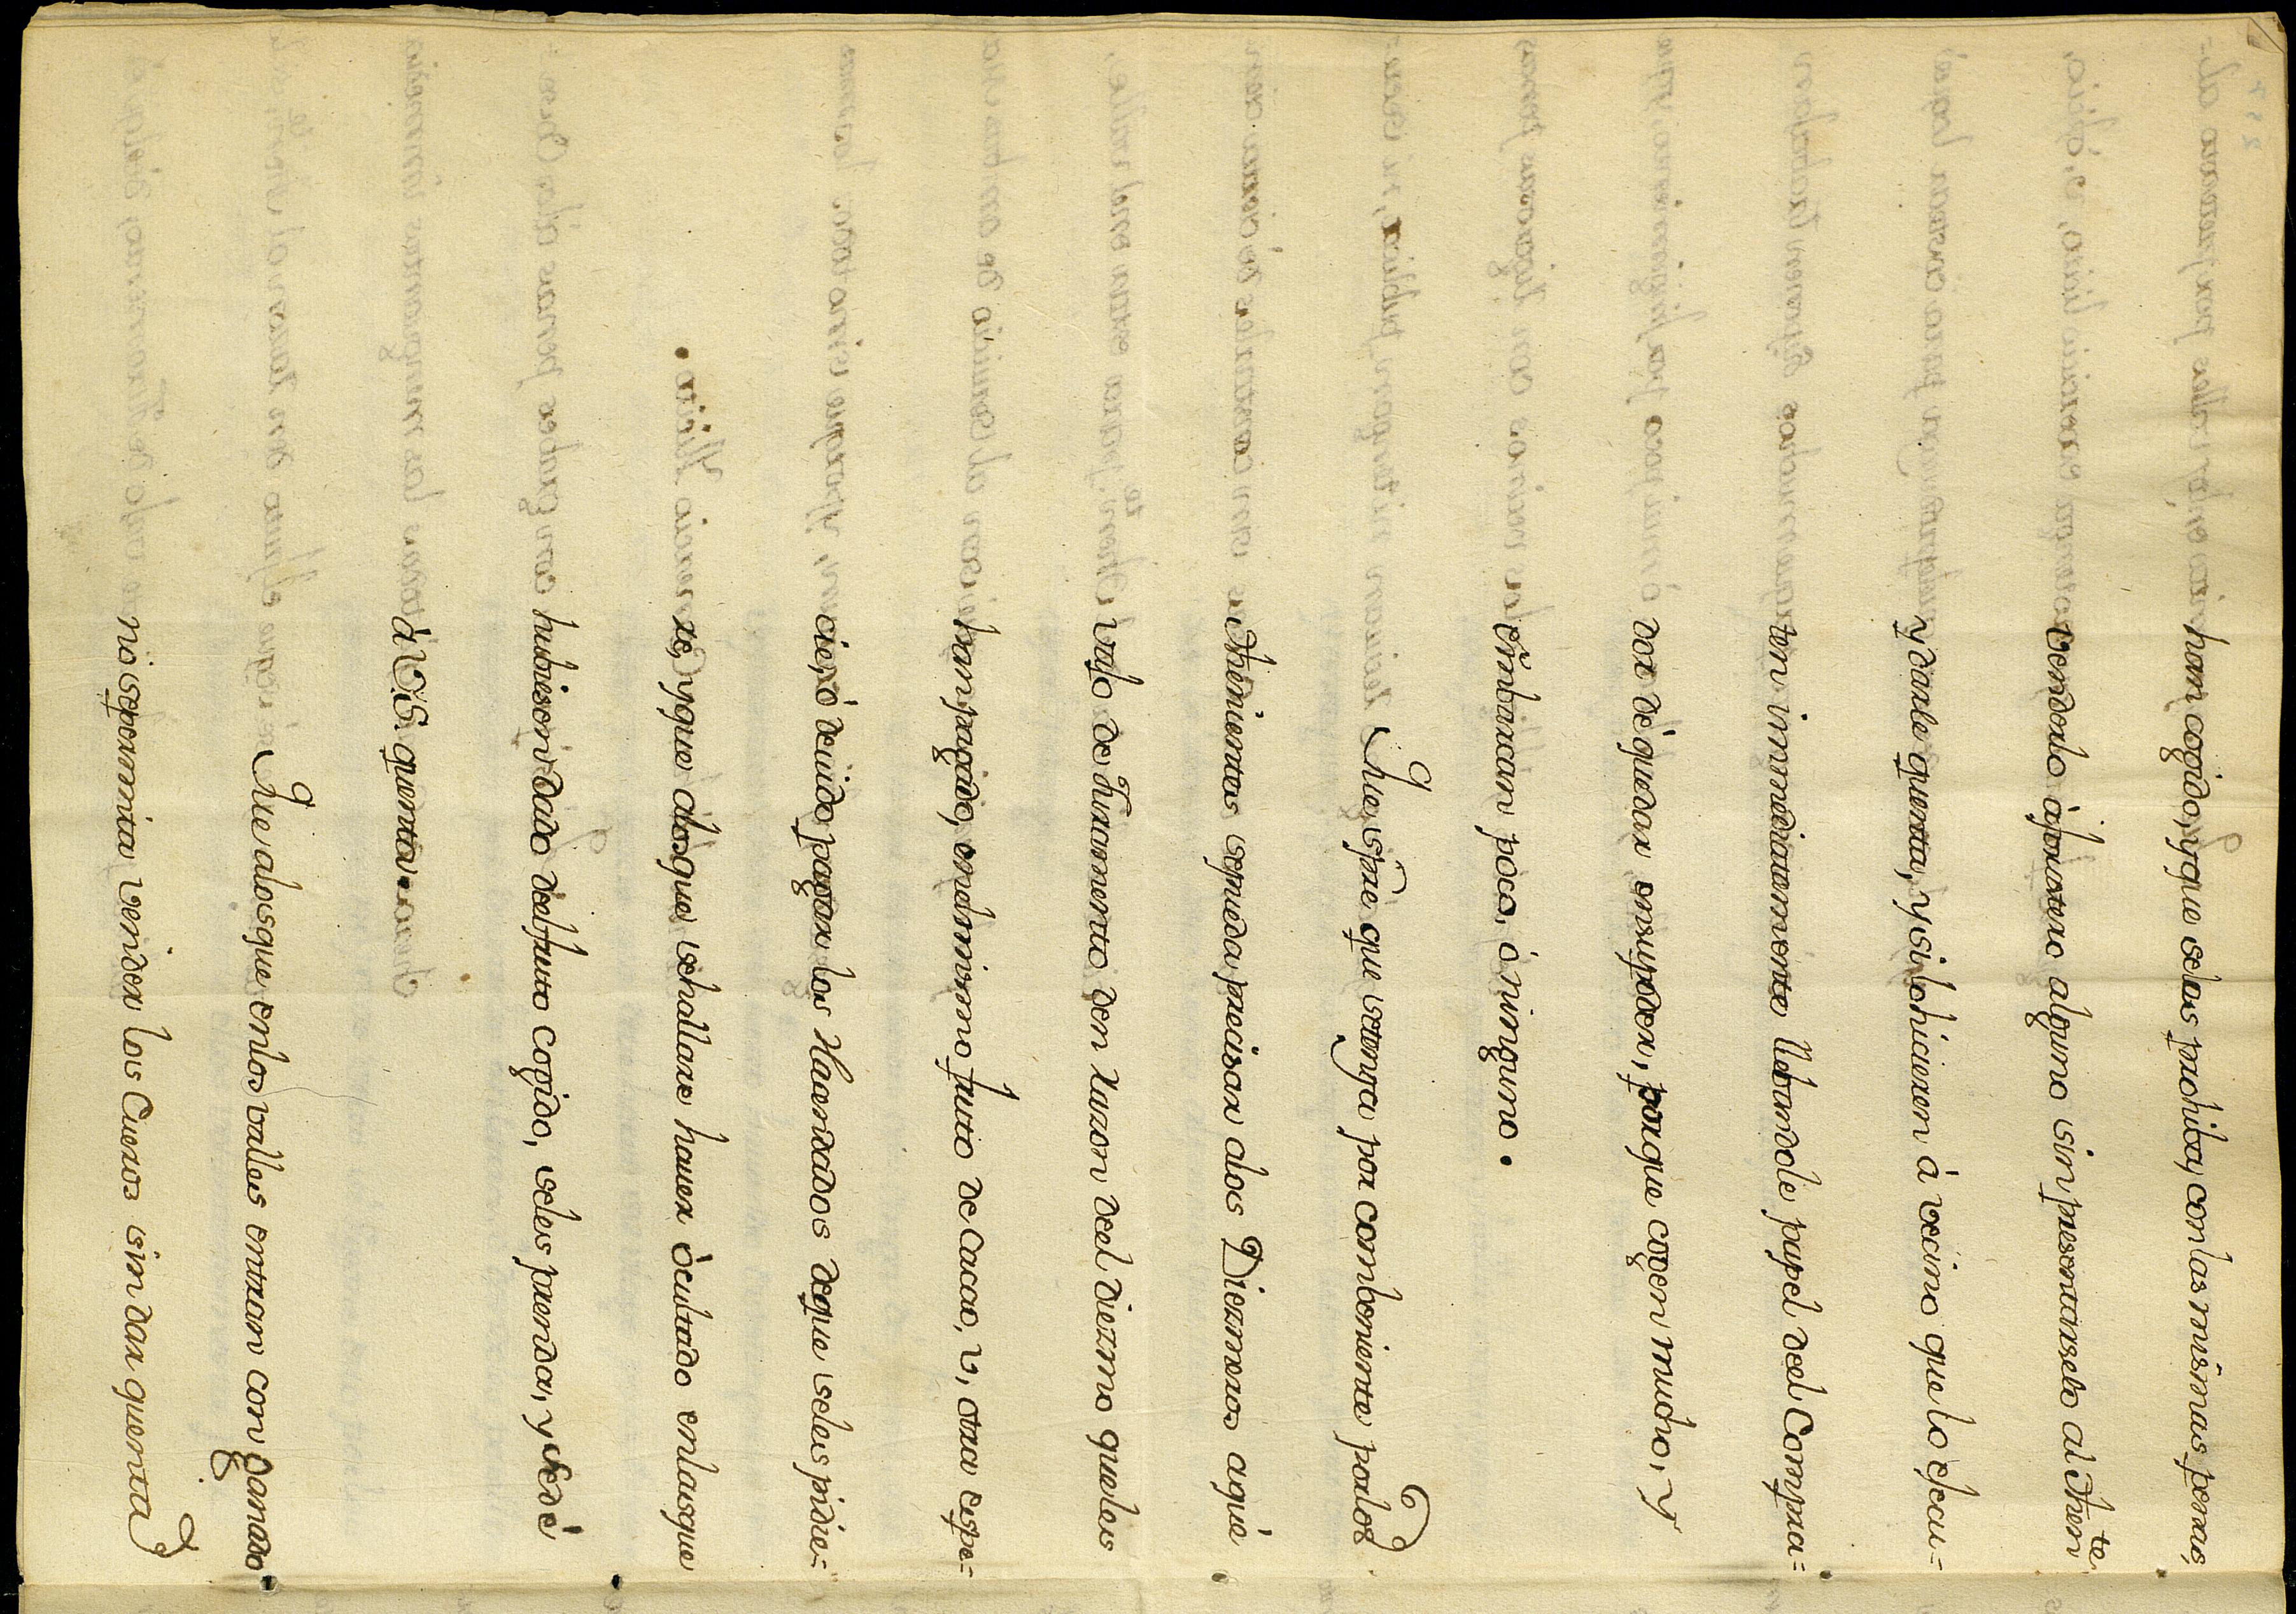 han cogido, y que selas prohiba, con las mismas penas,
venderlo àfuetero alguno sin presentarselo al Then.te
y darle quenta, y si lo hicieren à vecino que lo éjecu=
ten inmediatamente llebandole papel del Compra=
dor de quedar en su poder, porque cogen mucho, y
émbarcan poco, ó ninguno.
Que siẽpre que setenga por combeniente por los
Thenientes se pueda precisar alos Diezmeros a que
vajo de Juramento den Razon del Diezmo que les
han pagado, en el mismo fruto de Cacao, v, otra espe=
cie, ò deuido pagar los Haсendados de que se les pidie=
re, y que alos que se hallare hauer òcultado en las que
hubiesen dado del fruto cogido, seles prenda, y se dè
à V.S. quenta.
Que alos que en los valles entran con Ganado
no se permita vender los Cueros sin dar quenta